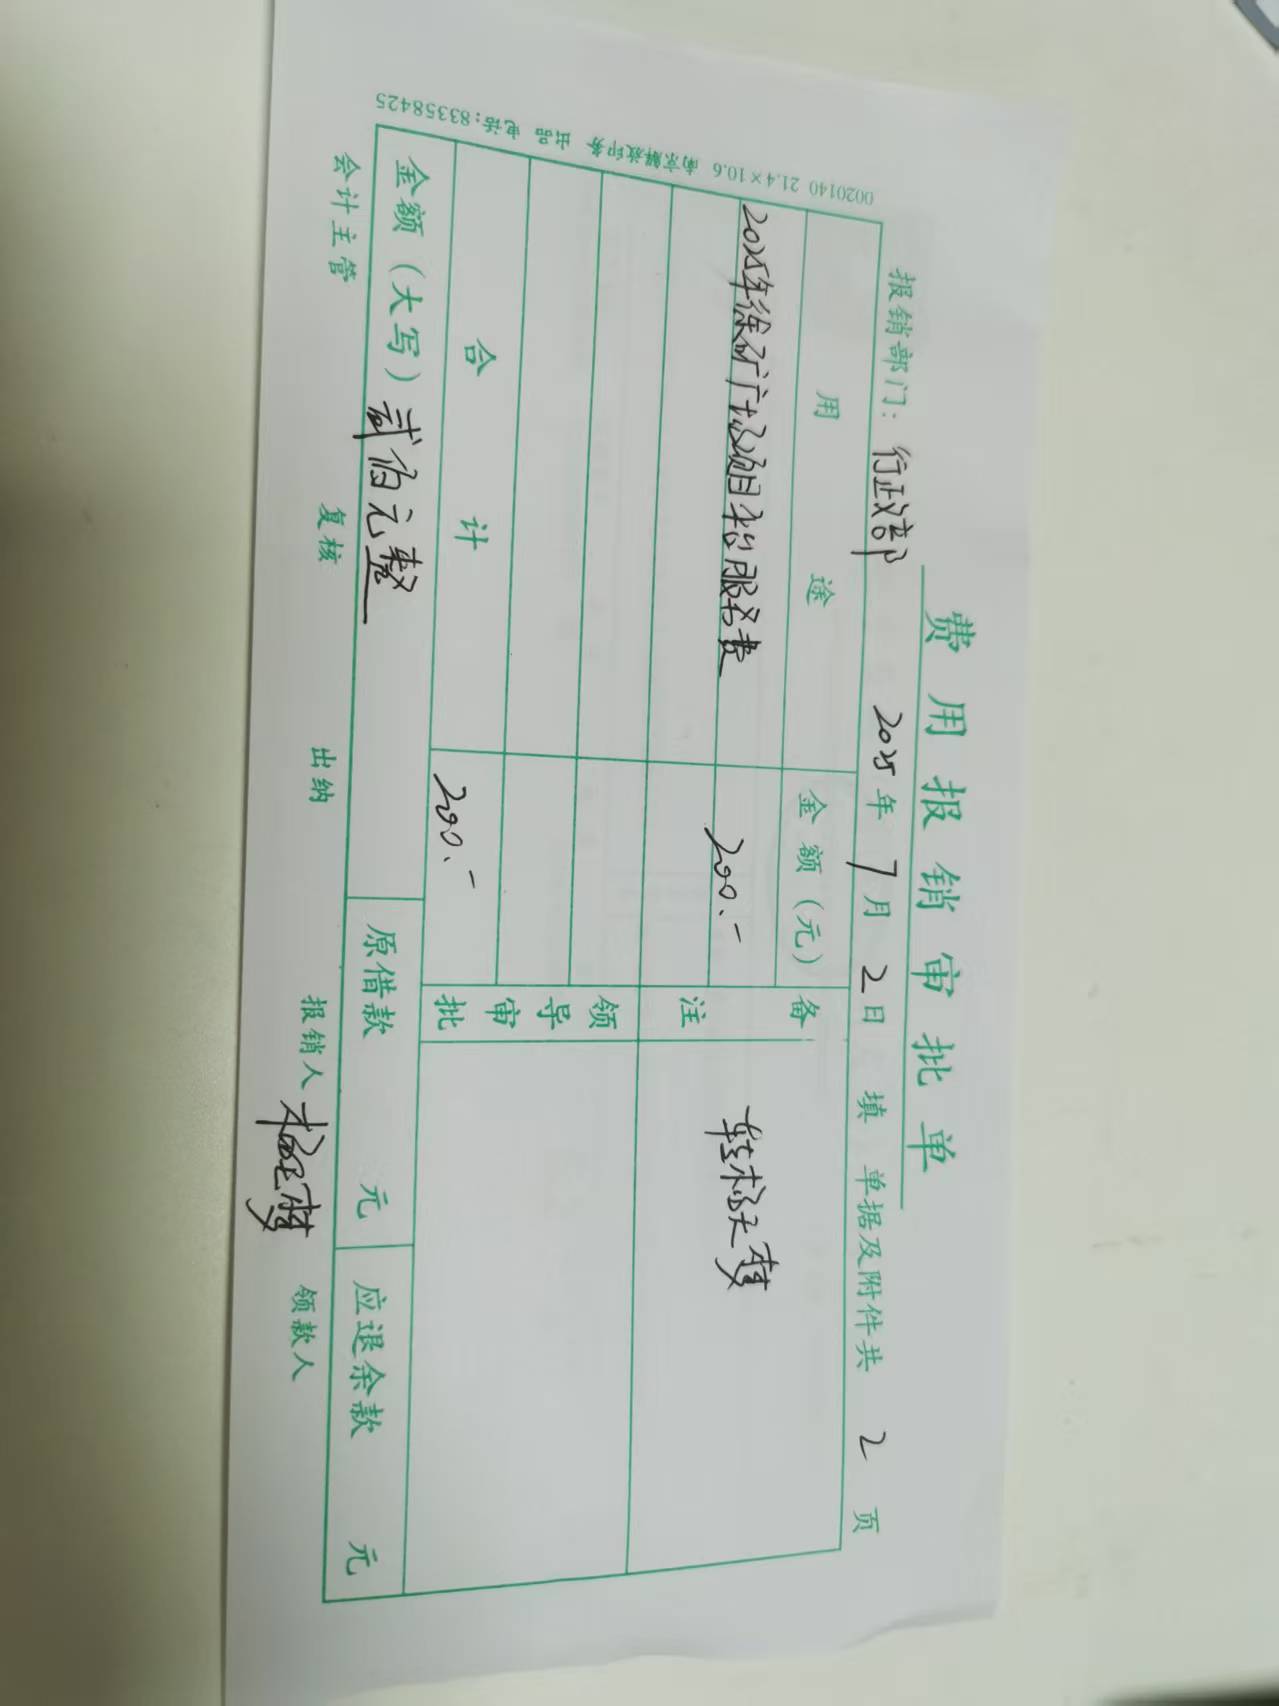 费用报销审批单
报销部门：行政部 2025年7月2日填 单据及附件共 2 页
用途 金额（元） 备注
2025年徐矿广场项目平台服务费 200.-
转杨天梦
领导审批
合计 200.-
金额（大写）贰佰元整 原借款 元 应退余款 元
会计主管 复核 出纳 报销人 领款人
0020140 21.4×10.6 南京解放印务 出品 电话:83358425